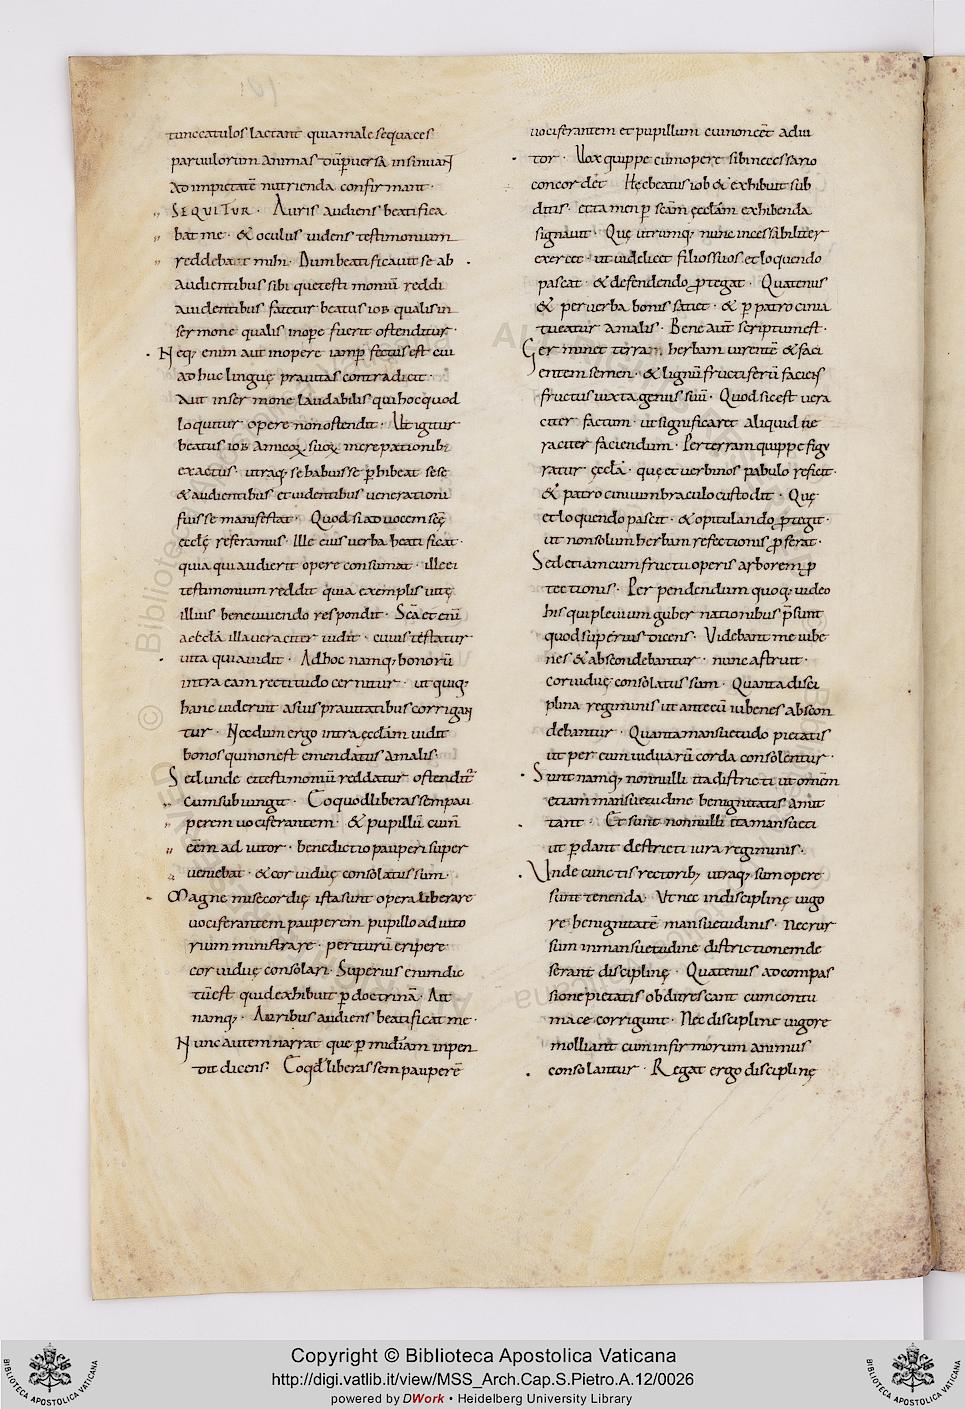 tunc catulos lactant quia male sequaces
parvulorum animas dũ pversa insinuant
ad impietatẽ nutrienda confirmant·
SEQUITUR· Auris audiens beatifica
bat me· & oculus videns testimonium
reddebat mihi· Dum beatificavit se ab
audientibus sibi que testimoniũ reddi
a videntibus fatetur beatus iob qualis in
sermone qualis in ope fuerit ostenditur·
Neq; enim aut in opere iam pfectus est cui
adhuc linguę pravitas contradicit·
Aut in sermone laudabilis qui hoc quod
loquitur opere non ostendit· Ut igitur
beatus iob amicoꝝ suoꝝ increpationib;
exactus· utraq; se habuisse phibeat sese
& audientibus et videntibus venerationi
fuisse manifestat· Quod si ad vocem scę
ecclę referamus· Ille eius verba beatificat·
quia qui audierit opere consumat· ille ei
testimonium reddit quia exemplis vitę
illius bene vivendo respondit· Scã etenĩ
aecclã illa veraciter vidit· cuius testatur
vita quia vidit· Ad hoc namq; bonorũ
intra eam rectitudo cernitur· ut quiq;
hanc viderint a suis pravitatibus corrigan
tur· Necdum ergo intra ęcclam vidit
bonos qui non est emendatus a malis·
Sed unde ei testimoniũ reddatur ostendit
cum subiungit· Eo quod liberassem pau
perem vociferantem· & pupillũ cui nõ
eẽm adiutor· benedictio pauperi super
veniebat· & cor viduę consolatus sum·
Magne misecordię ista sunt opera liberare
vociferantem pauperem pupillo adiuto
rium ministrare· periturũ eripere
cor viduę consolari· Superius enim dic
tũ est quid exhibuit p doctrinã· Ait
namq;· Auribus audiens beatificat me·
Nunc autem narrat que p midiam inpen
dit dicens· Eo qd liberassem pauperẽ
vociferantem et pupillum cui non cẽt adiu
tor· Vox quippe cum opere sibi necessario
concordet· Hęc beatus iob & exhibuit sub
ditis· et tamen p scam ęcclam exhibenda
signavit· Quę utrumq; nunc incessabiliter
exercet· ut videlicet filios suos et loquendo
pascat· & defendendo ptegat· Quatenus
& per verba bonis satiet· & p patrociniu
tueatur a malis· Bene aut scriptum est·
Germinet terram herbam virentẽ & faci
entem semen· & lignũ fructiferũ faciens
fructus iuxta genus suũ· Quod sic est vera
citer factum· ut significaret aliquid ve
raciter faciendum· Per terram quippe figu
ratur ęcclã· quę et verbi nos pabulo reficit·
& patrocinii umbraculo custodit· Quę
et loquendo pascit· & opitulando ptegit·
ut non solum herbam refectionis pferat·
Sed etiam cum fructu operis arborem p
tectionis· Perpendendum quoq; video
his qui plevium gubernationibus psunt
quod superius dicens· Videbant me iube
nes & abscondebantur· nunc astruit·
cor viduę consolatus sum· Quanta disci
plina regiminis ut ante eũ iubenes abscon
debantur· Quanta mansuetudo pietatis
ut per eum viduarũ corda consolentur·
Sunt namq; nonnulli ita districti ut omẽm
etiam mansuetudinẽ benignitatis amit
tant· Et sunt nonnulli ita mansueti
ut pdant destricti iura regiminis·
Unde cunctis rectorib; utraq; sũm opere
sunt tenenda· Ut nec in disciplinę vigo
re benignitatẽ mansuetudinis· Nec rur
sum in mansuetudine districtionem de
serant disciplinę· Quatenus ad compas
sione pietatis obdurescant cum contu
maces corrigunt· Nec discipline vigore
molliant cum infirmorum animus
consolantur· Regat ergo disciplinę
Copyright © Biblioteca Apostolica Vaticana
http://digi.vatlib.it/view/MSS_Arch.Cap.S.Pietro.A.12/0026
powered by DWork • Heidelberg University Library
BIBLIOTECA APOSTOLICA VATICANA
BIBLIOTECA APOSTOLICA VATICANA